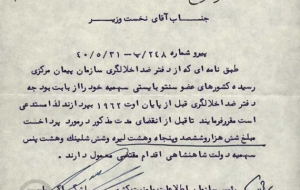 جناب آقای نخست وزیر
پیرو شماره ۲۴۸/پ-۴۰/۵/۳۱
طبق نامه ای که از دفتر ضد اخلالگری سازمان پیمان مرکزی
رسیده کشورهای عضو سنتو بایستی سهمیه خود را از بابت بودجه
دفتر ضد اخلالگری قبل از پایان اوت ۱۹۶۲ بپردازند لذا مستدعی
است مقرر فرمایند تا قبل از انقضای مدت مذکور در مورد پرداخت
مبلغ شش هزار و ششصد و پنجاه و هشت لیره و هشت شلینگ و هشت پنس
سهمیه دولت شاهنشاهی اقدام مقتضی معمول دارند.